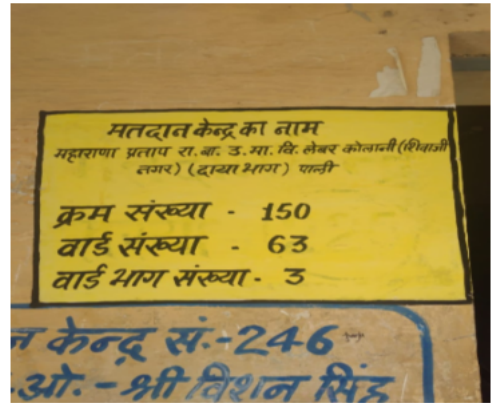 मतदान केन्द्र का नाम
महाराणा प्रताप रा.बा.उ.मा.वि. लेबर कोलानी (शिवाजी
नगर) (दाया भाग) पाली
क्रम संख्या - 150
वार्ड संख्या - 63
वार्ड भाग संख्या - 3
न केन्द्र सं.-246
.ओ.-श्री विशन सिंह